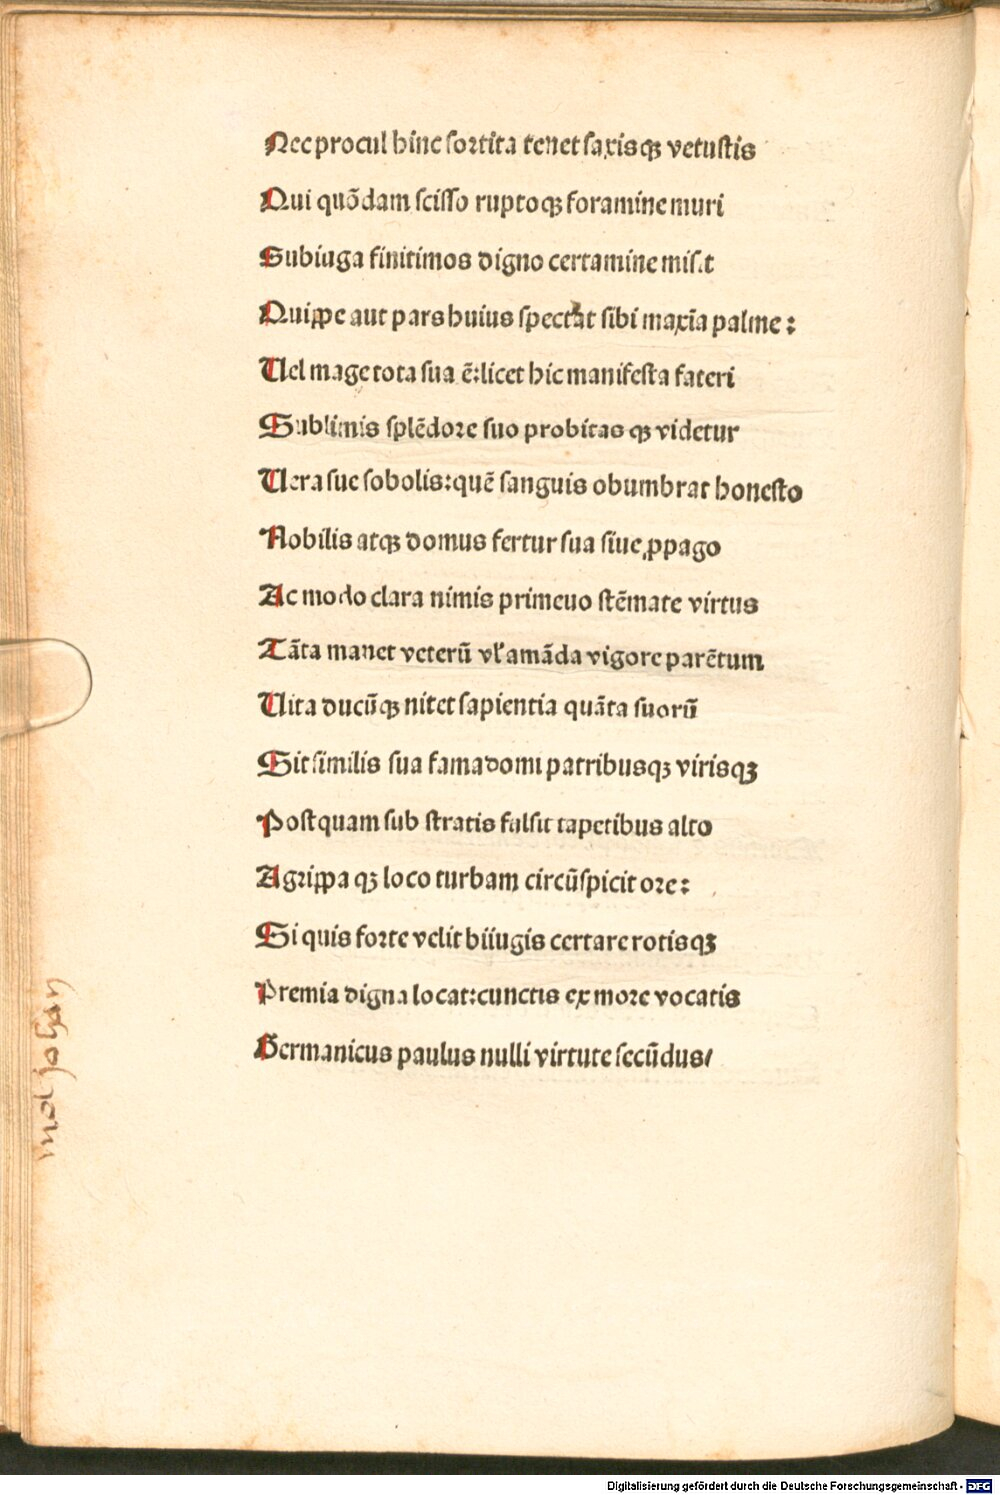 Nec procul hinc sortita tenet saxisqꝫ vetustis
Qui quōdam scisso ruptoqꝫ foramine muri
Subiuga finitimos digno certamine misit
Quippe aut pars huius spectat sibi maxīa palme:
Uel mage tota sua ē: licet hic manifesta fateri
Sublimis splēdore suo probitas qꝫ videtur
Uera sue sobolis: quē sanguis obumbrat honesto
Nobilis atqꝫ domus fertur sua siue ꝓpago
Ac modo clara nimis primeuo stēmate virtus
Tāta manet veterū vl' amāda vigore parētum
Uita ducūqꝫ nitet sapientia quāta suorū
Sit similis sua fama domi patribusqꝫ virisqꝫ
Postquam sub stratis fulsit tapetibus alto
Agrippa qꝫ loco turbam circūspicit ore:
Si quis forte velit biiugis certare rotisqꝫ
Premia digna locat: cunctis ex more vocatis
Germanicus paulus nulli virtute secūdus/
Digitalisierung gefördert durch die Deutsche Forschungsgemeinschaft - DFG